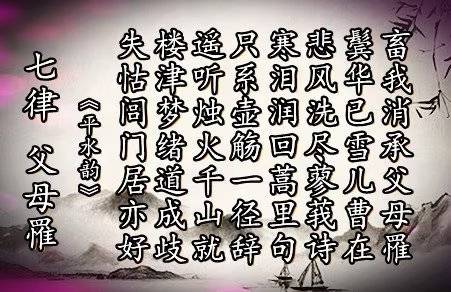 七律 父母罹
《平水韵》
失怙闾门居亦好
楼津梦绪道成歧
遥听烛火千山就
只系壶觞一径辞
寒泪润回蒿里句
悲风洗尽蓼莪诗
鬓华已雪儿曹在
畜我消承父母罹